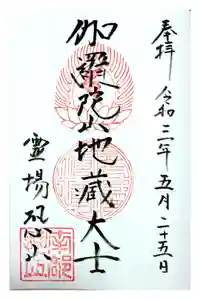 奉拝 令和三年五月二十五日
伽羅陀山地蔵大士
霊場恐山